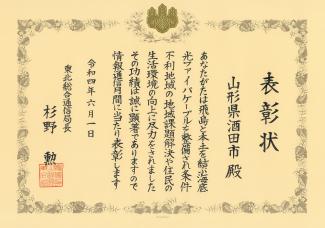 表彰状
山形県酒田市 殿
あなたがたは飛島と本土を結ぶ海底
光ファイバケーブルを整備され条件
不利地域の地域課題解決や住民の
生活環境の向上に尽力をされました
その功績は誠に顕著でありますので
情報通信月間に当たり表彰します
令和四年六月一日
東北総合通信局長
杉野 勲